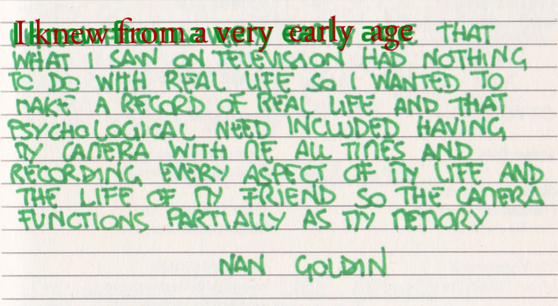 I knew from a very early age THAT
WHAT I SAW ON TELEVISION HAD NOTHING
TO DO WITH REAL LIFE SO I WANTED TO
MAKE A RECORD OF REAL LIFE AND THAT
PSYCHOLOGICAL NEED INCLUDED HAVING
MY CAMERA WITH ME ALL TIMES AND
RECORDING EVERY ASPECT OF MY LIFE AND
THE LIFE OF MY FRIEND SO THE CAMERA
FUNCTIONS PARTIALLY AS MY MEMORY
NAN GOLDIN